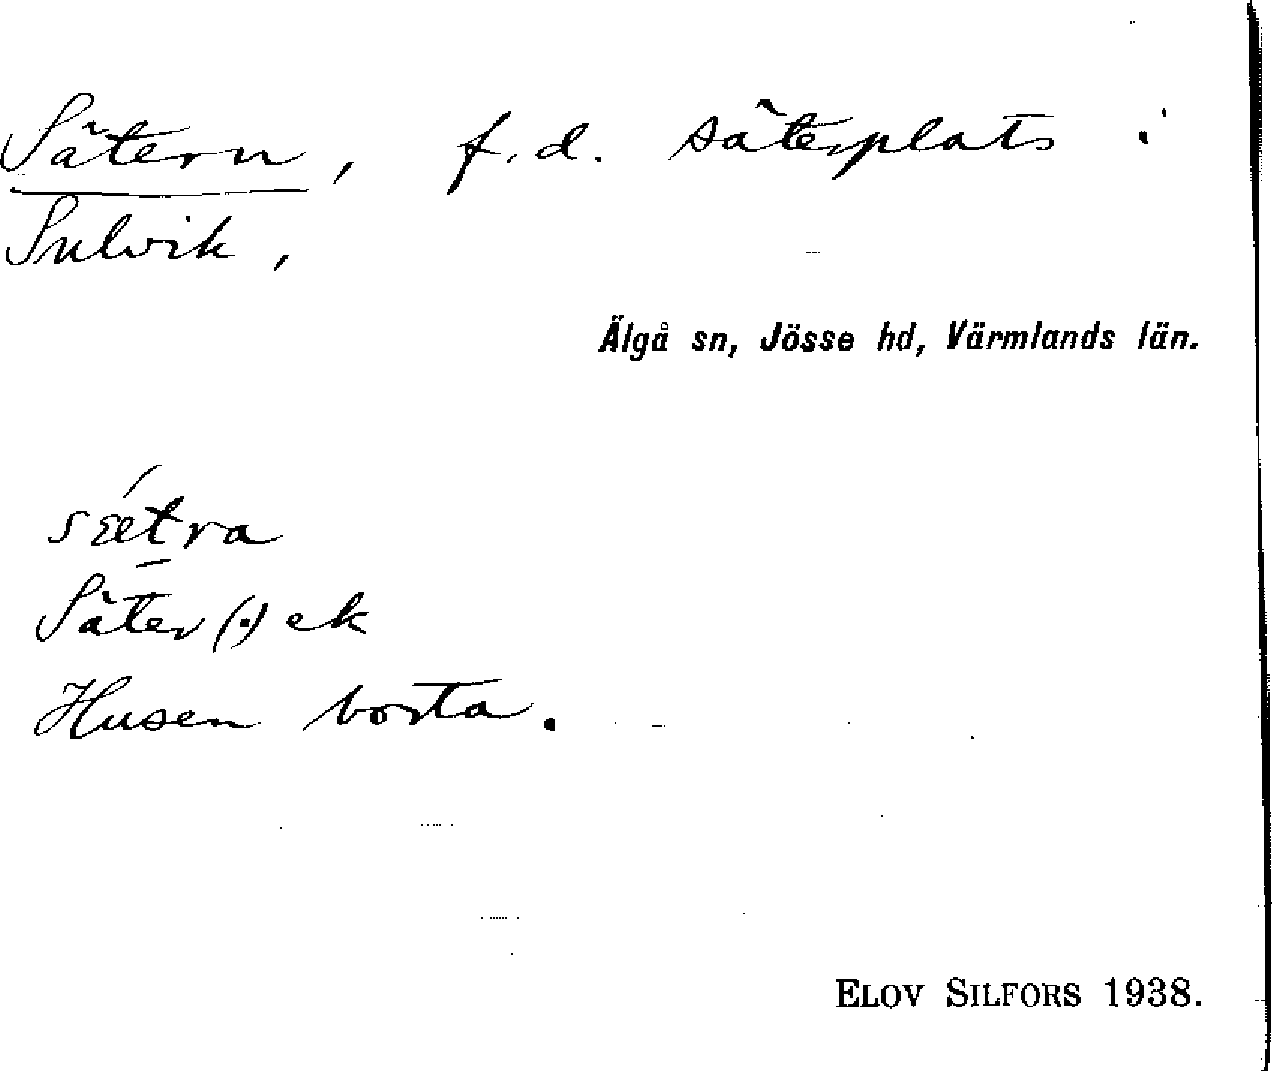 Sätern, f.d. säterplats i
Sulvik,
Älgå sn, Jösse hd, Värmlands län.
sǽtra
Säter (·) ek
Husen borta.
ELOV SILFORS 1938.